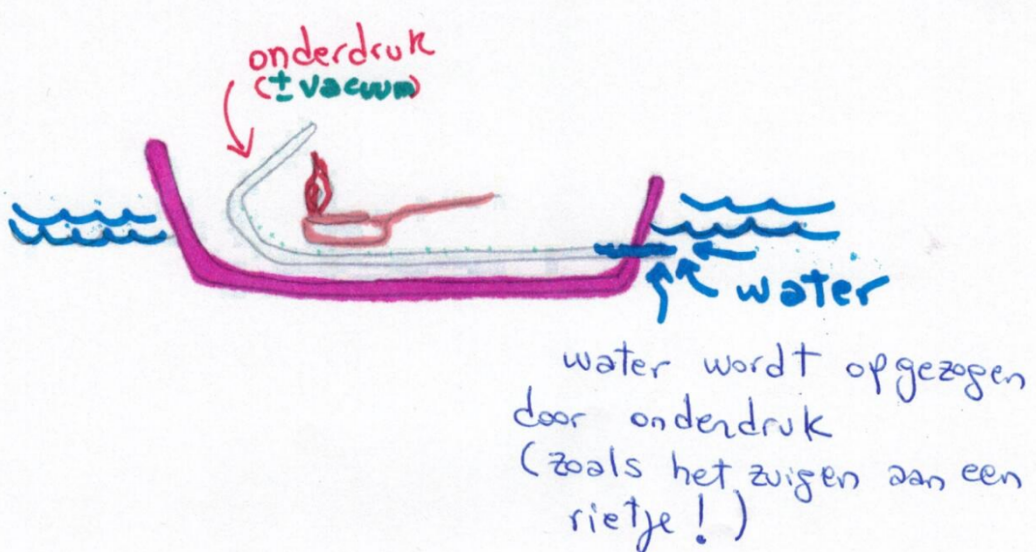 onderdruk
(± vacuum)
water
water wordt opgezogen
door onderdruk
(zoals het zuigen aan een
rietje!)